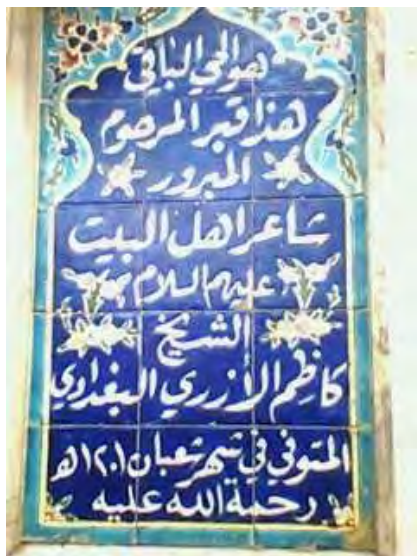 هو الحي الباقي
هذا قبر المرحوم
المبرور
شاعر اهل البيت
عليهم السلام
الشيخ
كاظم الأزري البغدادي
المتوفي في شهر شعبان ١٢٠١ه
رحمة الله عليه